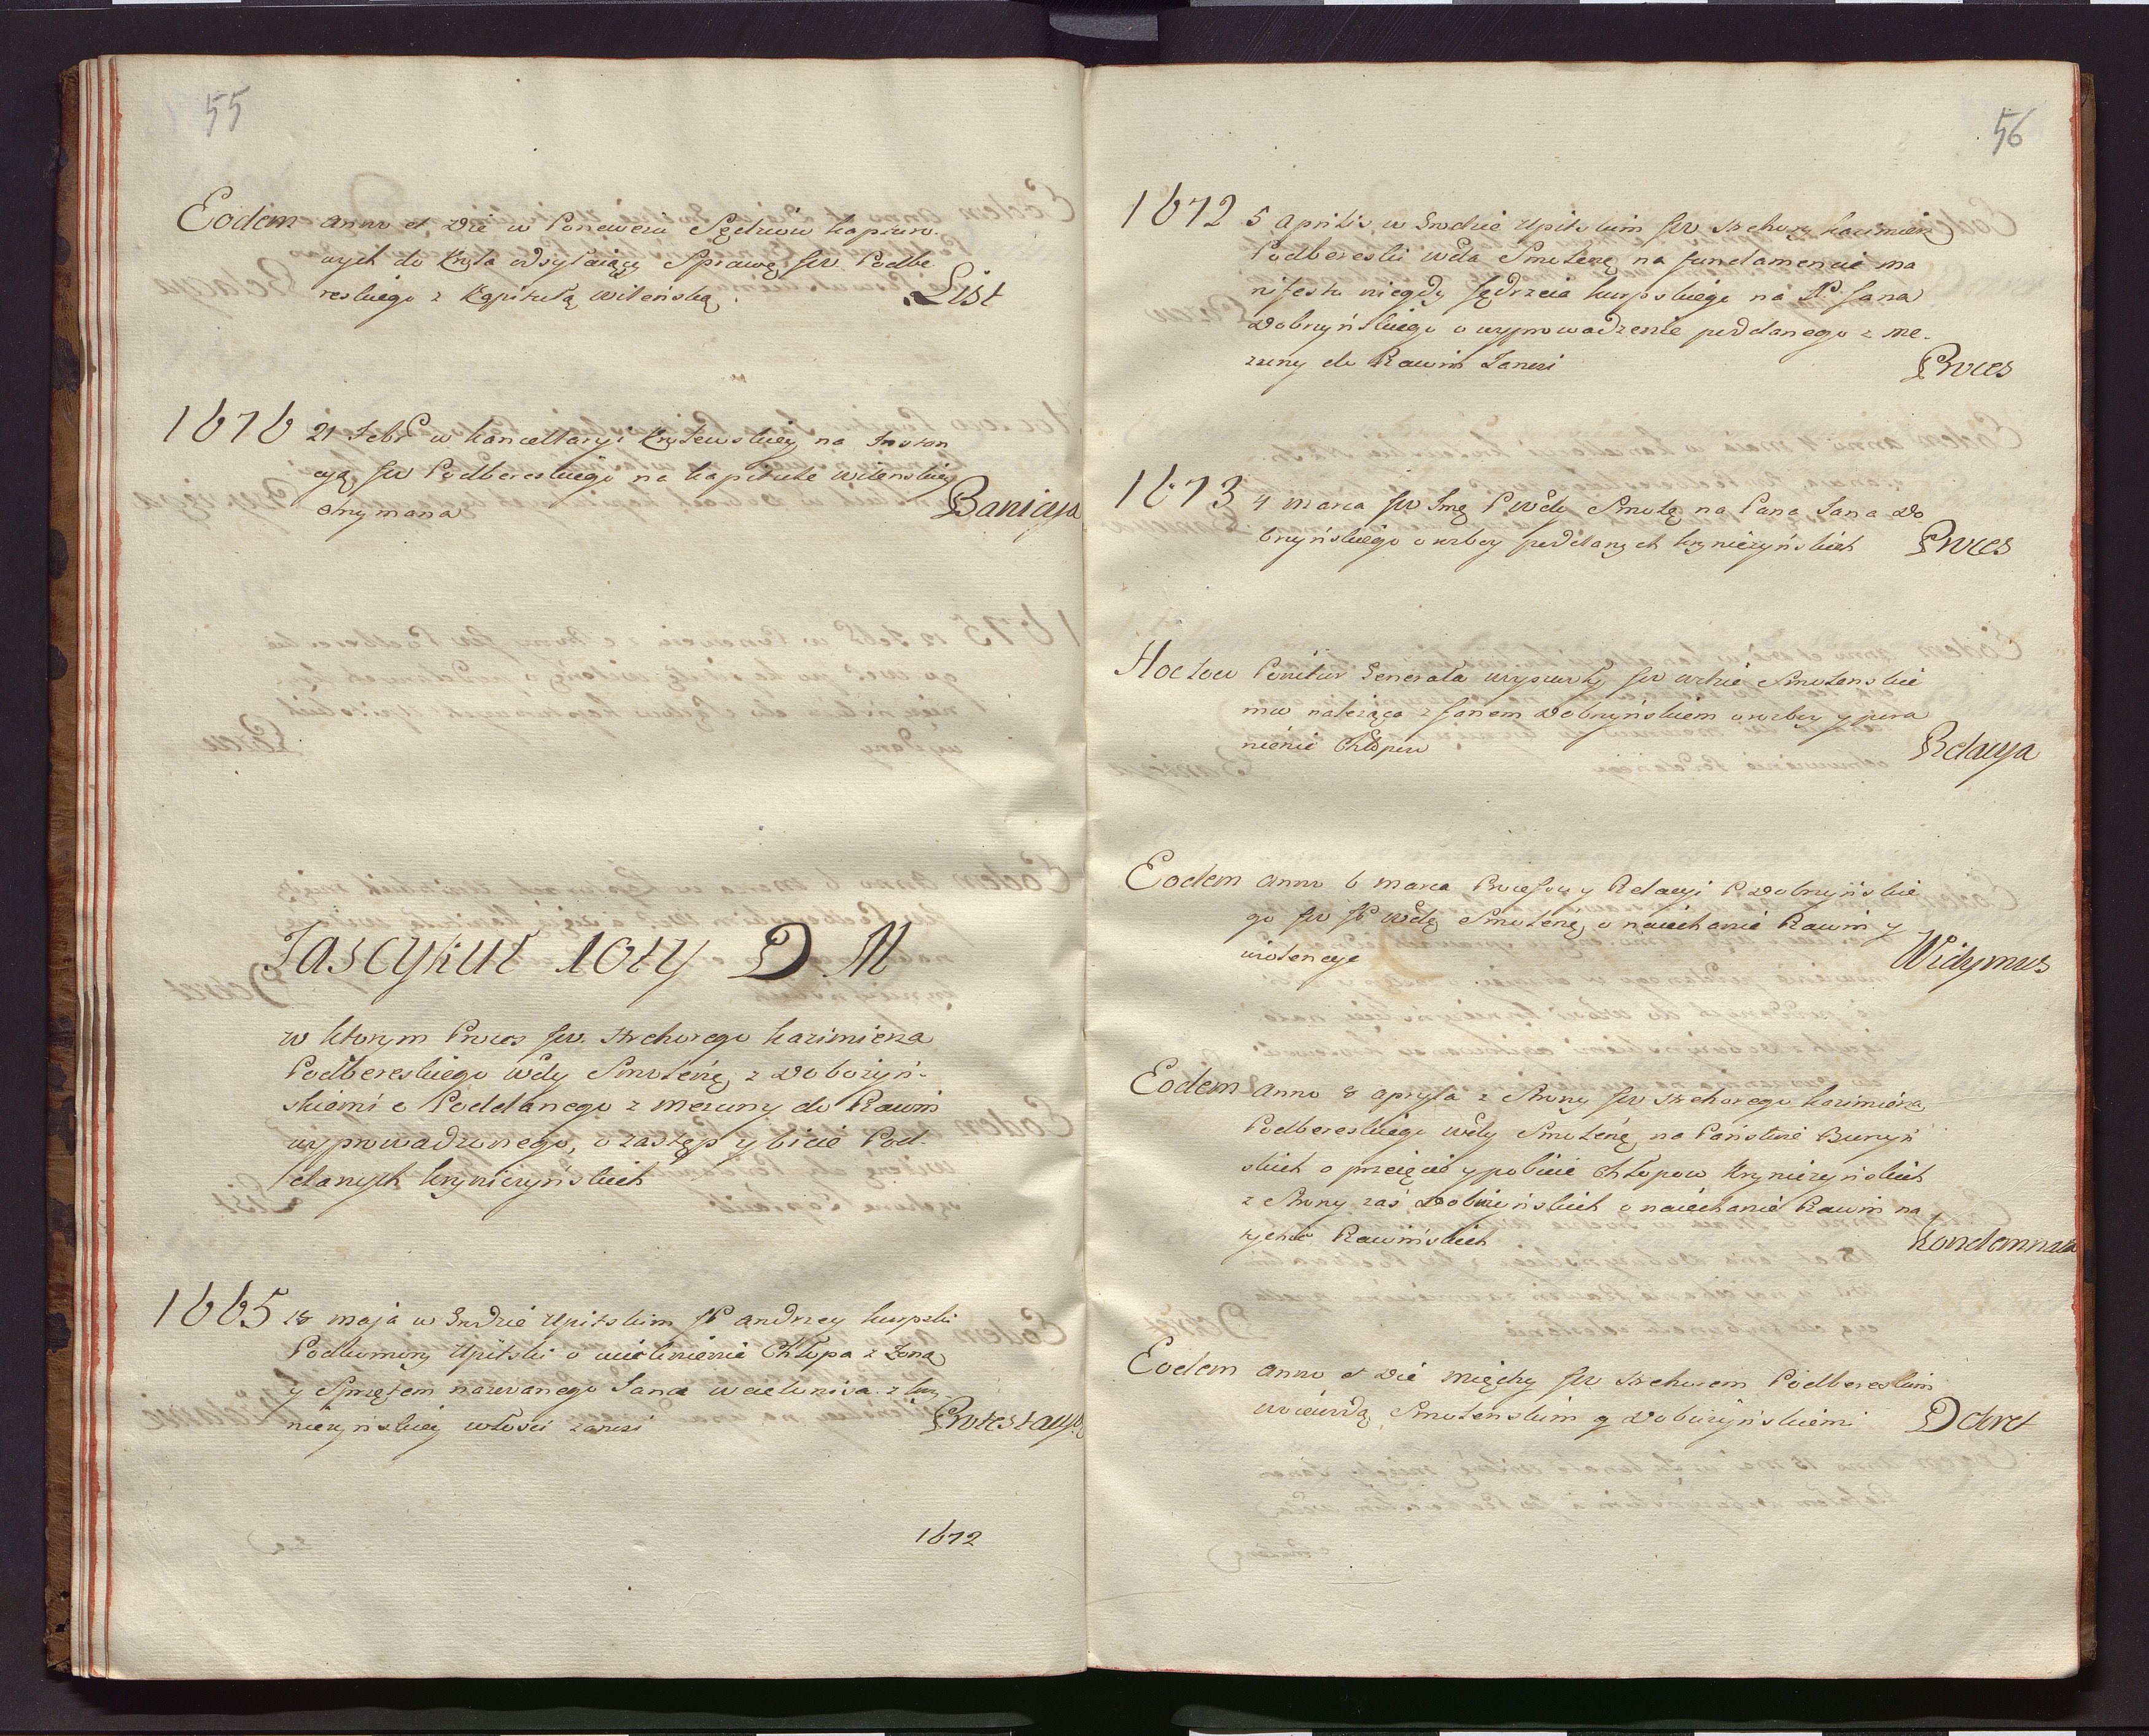 55
Eodem anno et die w Poneweżu Sędziow kapturo-
wych do Króla odsyłaiący Sprawę JW Podbe
reskiego z Kapitułą wileńską. List
1676 21 Febr w kancellaryi Królewskiey na Instan
cyą JW Podbereskiego na kapitule wileńskiey
otrzymana Banicya
Fascykuł 10ty D M
w ktorym Proces JW. Strchorego kazimierza
Podbereskiego Wdy Smoleńg z Doborzyń-
skiemi o Poddanego z mezuny do Rawin
wyprowadzonego, o zastęp y bicie Pod-
danych krynicżyńskich
1665 18 maja w Grodzie Upitskim JP andrzey kurpski
Podkomorzy Upitski o uieknienie Chłopa z Zoną
y Sprzętem nazwanego Jana z kry-
niczyńskiey włości zanosi Protestacyą
1672
56
1672 5 Aprilis w Grodzie Upitskim JW Strchory kazimierz
Podbereski Wda Smoleńg na fundamencie ma
nifestu niegdy Jędrzeia kurpskiego na P Jana
Dobrzyńskiego o wyprowadzenie poddanego z me-
zuny do Rawin Zanosi Proces
1673 4 marca JW Jmę P Wdy Smoleg na Pana Jana Do
brzyńskiego o rozboy poddanych krynieżyńskich Proces
Hoc loco Ponitur Generała wypisu ty JW wdzie Smolenskie
mu należąca z Janem Dobrzyńskiem o rozboy y pora
nienie Chłopow Relacya
Eodem anno 6 marca Procesow y Relacyi P Dobrzyńskie
go JW JP Wdę Smoleńg o naiechanie Rawin y
wiolencye Widymus
Eodem anno 8 apryla z Strony JW Strchorego kazimierza
Podbereskiego Wdy Smoleńg na Państwie Burzyń
skich o przeięcie y pobicie Chłopow Krynieżyńskich
z Strony zaś Dobrzyńskich o naiechanie Rawin na
tychże Rawińskich Kondemnata
Eodem anno et die między JW Strchorem Podbereskim
woiewodą Smolenskim y Doborzyńskiemi Dekret